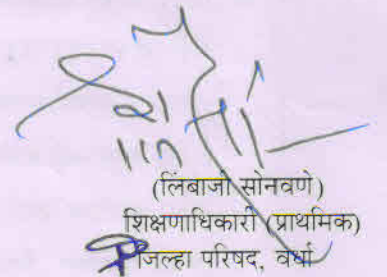 (लिंबाजी सोनवणे)
शिक्षणाधिकारी (प्राथमिक)
जिल्हा परिषद, वर्धा